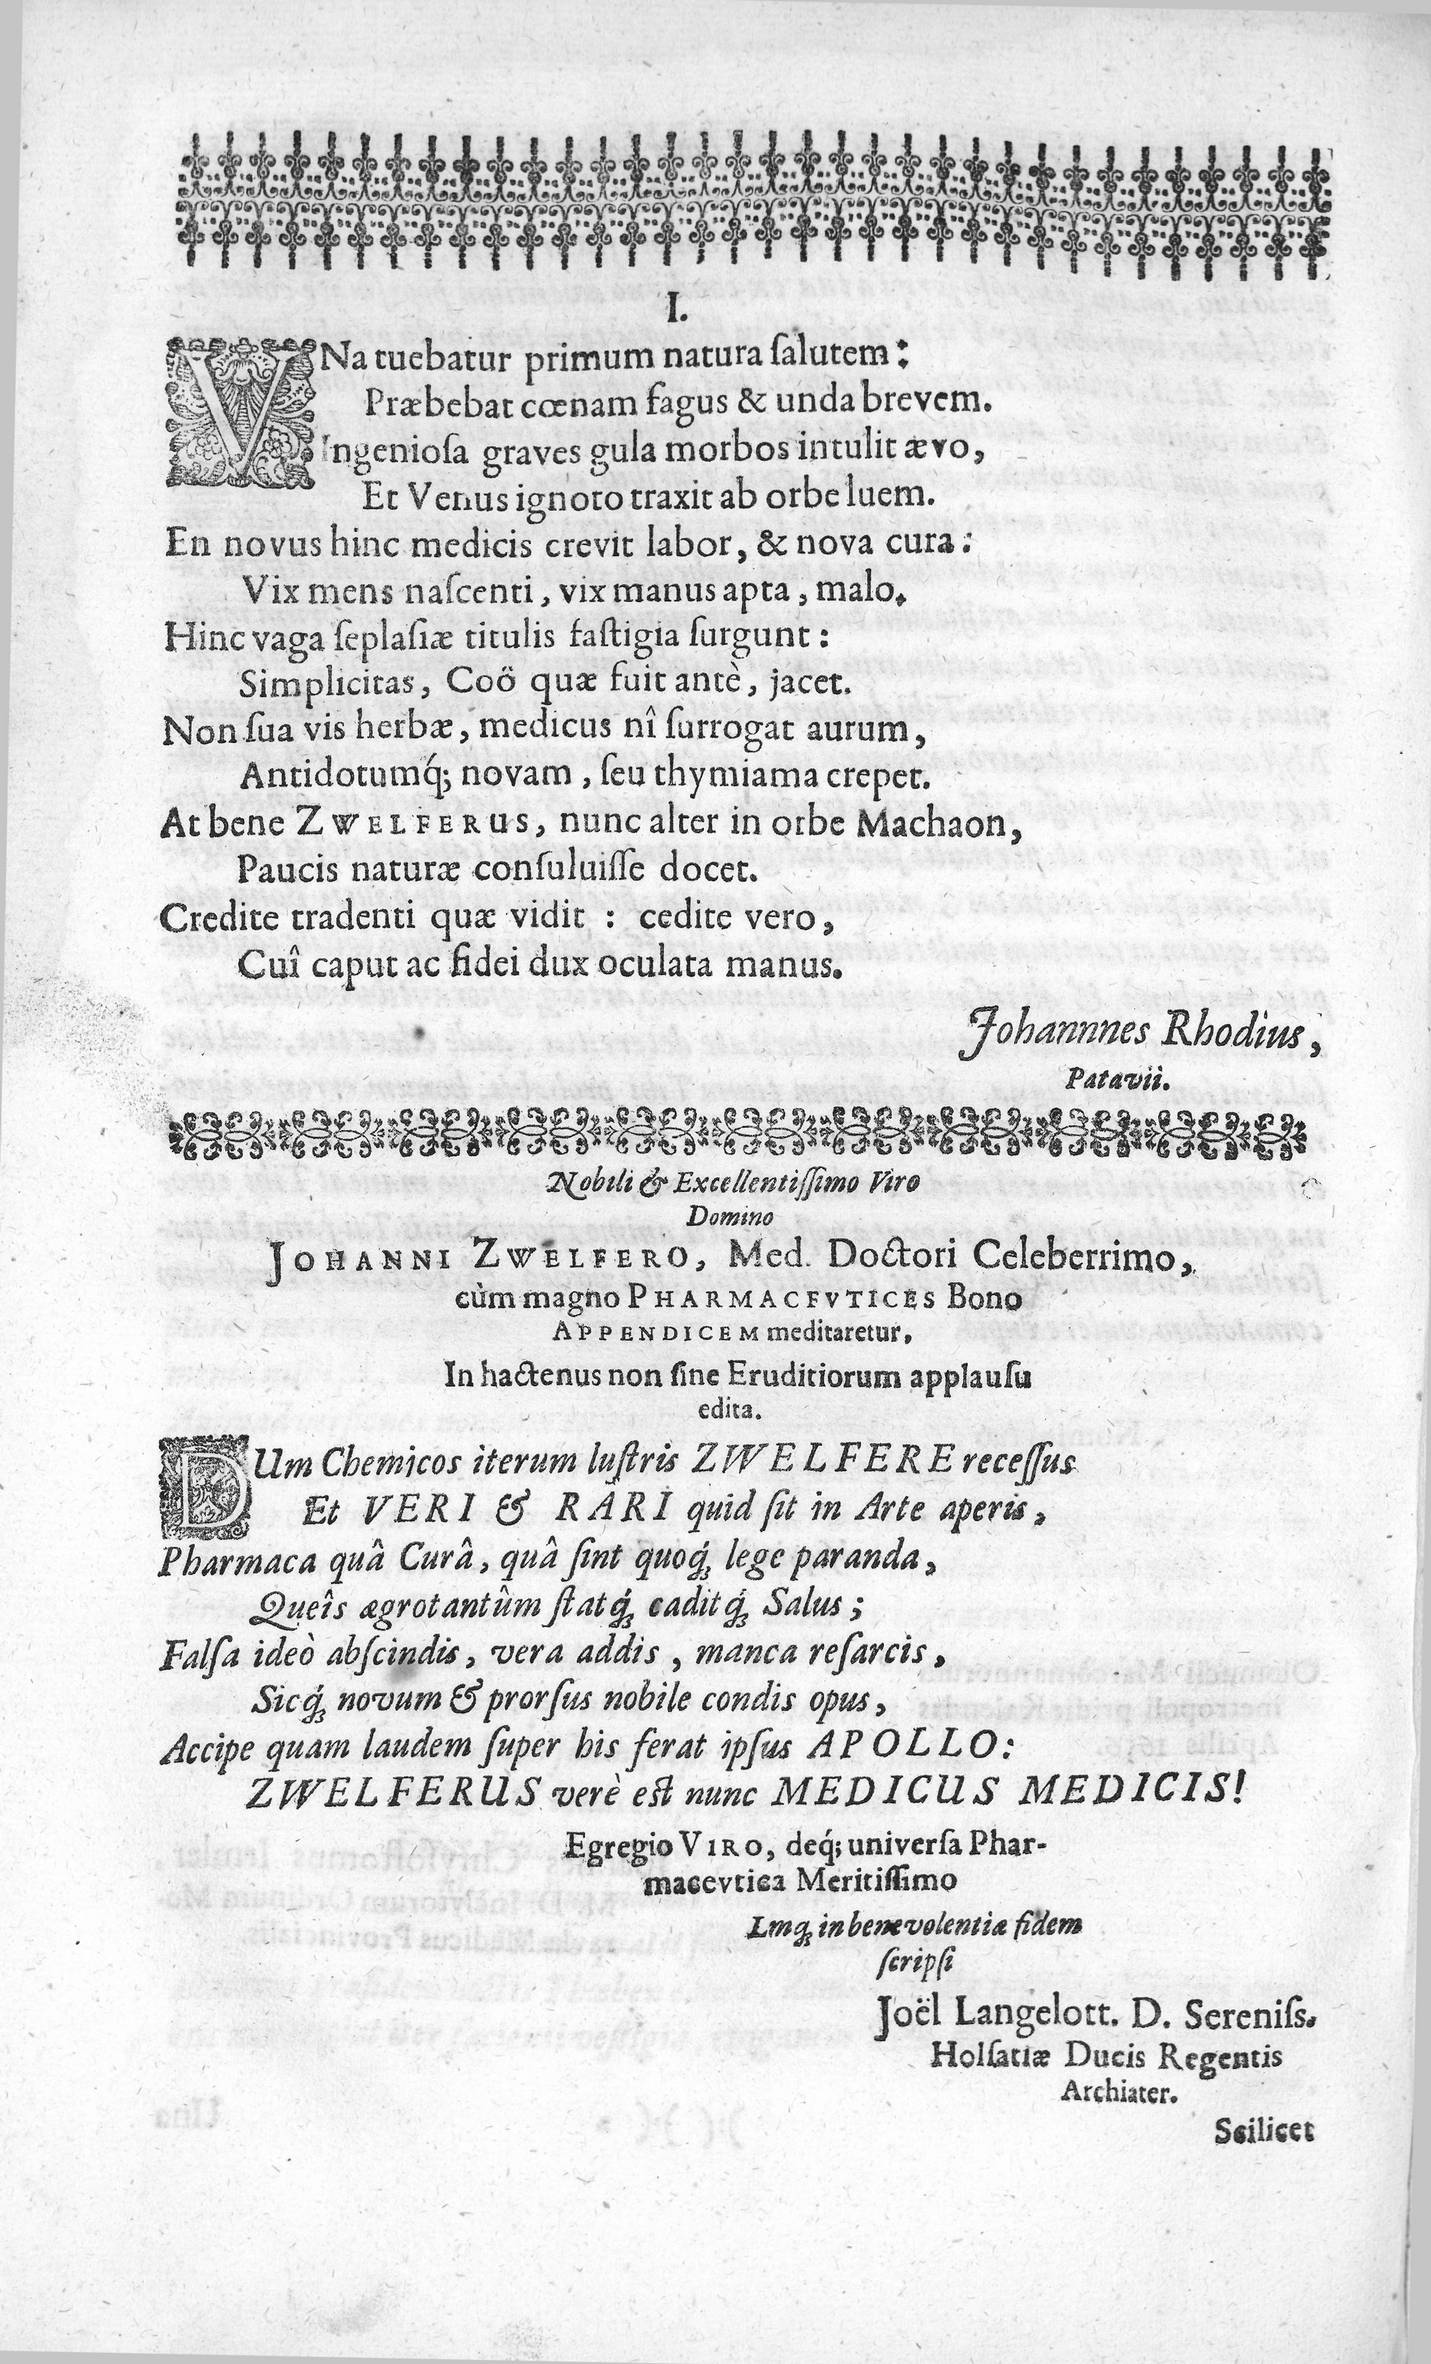 I.
VNa tuebatur primum natura ſalutem:
Præbebat cœnam fagus & unda brevem.
Ingenioſa graves gula morbos intulit ævo,
Et Venus ignoto traxit ab orbe luem.
En novus hinc medicis crevit labor, & nova cura:
Vix mens naſcenti, vix manus apta, malo.
Hinc vaga ſeplaſiæ titulis faſtigia ſurgunt:
Simplicitas, Coö quæ fuit antè, jacet.
Non ſua vis herbæ, medicus nî ſurrogat aurum,
Antidotumq́; novam, ſeu thymiama crepet.
At bene ZWELFERUS, nunc alter in orbe Machaon,
Paucis naturæ conſuluiſſe docet.
Credite tradenti quæ vidit : cedite vero,
Cuî caput ac fidei dux oculata manus.
Johannnes Rhodius,
Patavii.
Nobili & Excellentiſſimo Viro
Domino
JOHANNI ZWELFERO, Med. Doctori Celeberrimo,
cùm magno PHARMACEVTICES Bono
APPENDICEM meditaretur,
In hactenus non ſine Eruditiorum applauſu
edita.
DUm Chemicos iterum luſtris ZWELFERE receſſus
Et VERI & RARI quid ſit in Arte aperis,
Pharmaca quâ Curâ, quâ ſint quoq́; lege paranda,
Queîs ægrotantûm ſtatq́; caditq́; Salus;
Falſa ideò abſcindis, vera addis, manca reſarcis,
Sicq́; novum & prorſus nobile condis opus,
Accipe quam laudem ſuper his ferat ipſus APOLLO:
ZWELFERUS verè eſt nunc MEDICUS MEDICIS!
Egregio VIRO, deq́; univerſa Phar-
macevtica Meritiſſimo
Lmq; in benevolentiæ fidem
ſcripſi
Joël Langelott. D. Sereniſs.
Holſatiæ Ducis Regentis
Archiater.
Scilicet